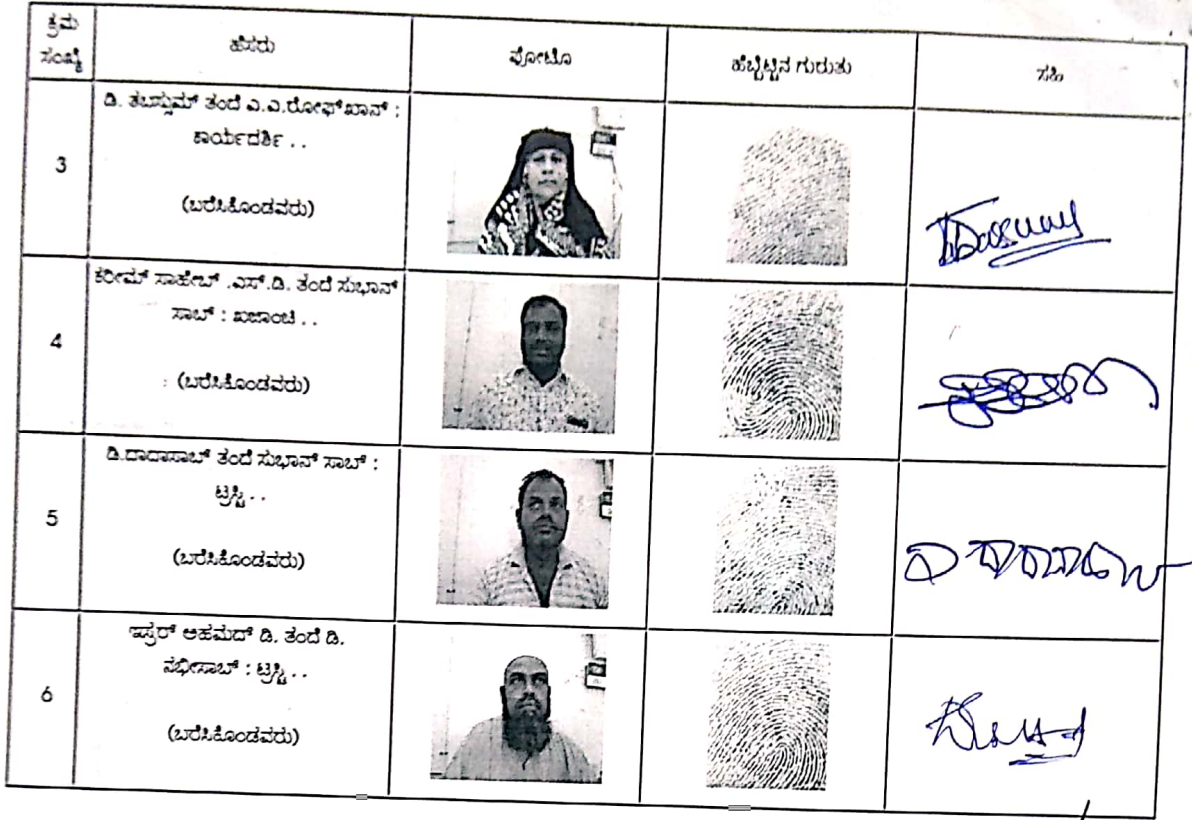 ಕ್ರಮ ಸಂಖ್ಯೆ ಹೆಸರು ಫೋಟೊ ಹೆಬ್ಬೆಟ್ಟಿನ ಗುರುತು ಸಹಿ
3
ಡಿ. ತಬಸ್ಸುಮ್ ತಂದೆ ಎ.ಎ.ರೋಫ್‌ಖಾನ್ :
ಕಾರ್ಯದರ್ಶಿ . .
(ಬರೆಸಿಕೊಂಡವರು)
4
ಕರೀಮ್ ಸಾಹೇಬ್ .ಎಸ್.ಡಿ. ತಂದೆ ಸುಭಾನ್
ಸಾಬ್ : ಖಜಾಂಚಿ . .
: (ಬರೆಸಿಕೊಂಡವರು)
5
ಡಿ.ದಾದಾಸಾಬ್ ತಂದೆ ಸುಭಾನ್ ಸಾಬ್ :
ಟ್ರಸ್ಟಿ . .
(ಬರೆಸಿಕೊಂಡವರು)
6
ಅಹಮದ್ ಡಿ. ತಂದೆ ಡಿ.
ನಭೀಸಾಬ್ : ಟ್ರಸ್ಟಿ . .
(ಬರೆಸಿಕೊಂಡವರು)